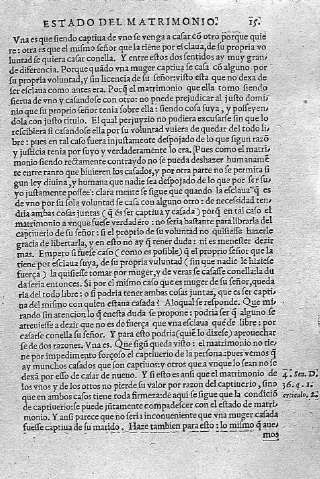 ESTADO DEL MATRIMONIO. 15.
Vna es que siendo captiua de vno se venga a casar cō otro porque quie
re: otra es que el mismo señor que la tiene por esclaua, de su propia vo
luntad se quiera casar conella. Y entre estos dos sentidos ay muy gran
de diferencia. Porque quādo vna muger captiua se casa cō alguno por
su propia voluntad, y sin licencia de su señor: visto esta que no dexa de
ser esclaua como antes era. Porq̃ el matrimonio que ella tomo siendo
sierua de vno y casandose con otro: no puede prejudicar al justo domi
nio que su proprio señor tenia sobre ella: siendo cosa suya, y posseyen
dola con justo titulo. El qual perjuyzio no pudiera escusarse sin que lo
rescibiera si casandose ella por su voluntad vuiera de quedar del todo li
bre: pues en tal caso fuera injustamente despojado de lo que segun razō
y justicia tenia por suyo y verdaderamente lo era. Pues como el matri
monio siendo rectamente contraydo no se pueda deshazer humanamē
te entre tanto que biuieren los casados, y por otra parte no se permita si
gun ley diuina, y humana que nadie sea despojado de lo que por ser su
yo justamente possee: claramente se sigue que quando la esclaua q̃ es
de vno por su sola voluntad se casa con alguno otro: de necesidad ten
dria ambas cosas juntas (q̃ es ser captiua y casada) porq̃ en tal caso el
matrimonio aunque fuesse verdadero: no seria bastante para librarla del
captiuerio de su señor: si el proprio de su voluntad no quisiesse hazerle
gracia de libertarla, y en esto no ay q̃ tener duda: ni es menester dezir
mas. Empero si fuesse caso (como es posible) q̃ el proprio señor que la
tiene por esclaua suya, de su propria voluntad (sin que nadie le hiziesse
fuerça) la quisiesse tomar por muger, y de veras se casasse conella: la du
da seria entonces. Si por el mismo caso que es muger de su señor, queda
ria del todo libre: o si podria tener ambas cosas juntas, que es ser capti
ua del mismo con quien estaua casada? A lo qual se responde. Que mi
rando sin atencion lo q̃ en esta duda se propone: podria ser q̃ alguno se
atreuiesse a dezir que no es de fuerça que vna esclaua quede libre: por
casarse conella su señor. Y para esto podria (qui��e lo dixesse) aprouechar
se de dos razones. Vna es. Que sigū queda visto: el matrimonio no tie
ne por impedimento forçoso el captiuerio de la persona: pues vemos q̃
ay munchos casados que son captiuos: y otros que a vno que lo sean no se
dexā por esso de casar de nueuo. Y si esto es ansi que el matrimonio de
los vnos y de los otros no pierde su valor por razon del captiuerio, sino
que en ambos casos tiene toda firmeza: de aqui se sigue que la condiciō
de captiuerio: se puede jūtamente compadescer con el estado de matri
monio. Y ansi parece que no seria inconueniente que vna muger casada
fuesse captiua de su marido. Haze tambien para esto: lo mismo q̃ aue
mos
4. Sen. D.
36. q. 1.
articulo. 2.